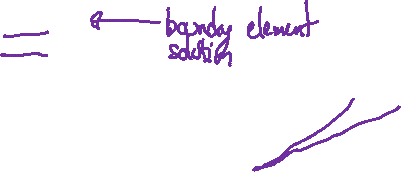 boundary element
solution